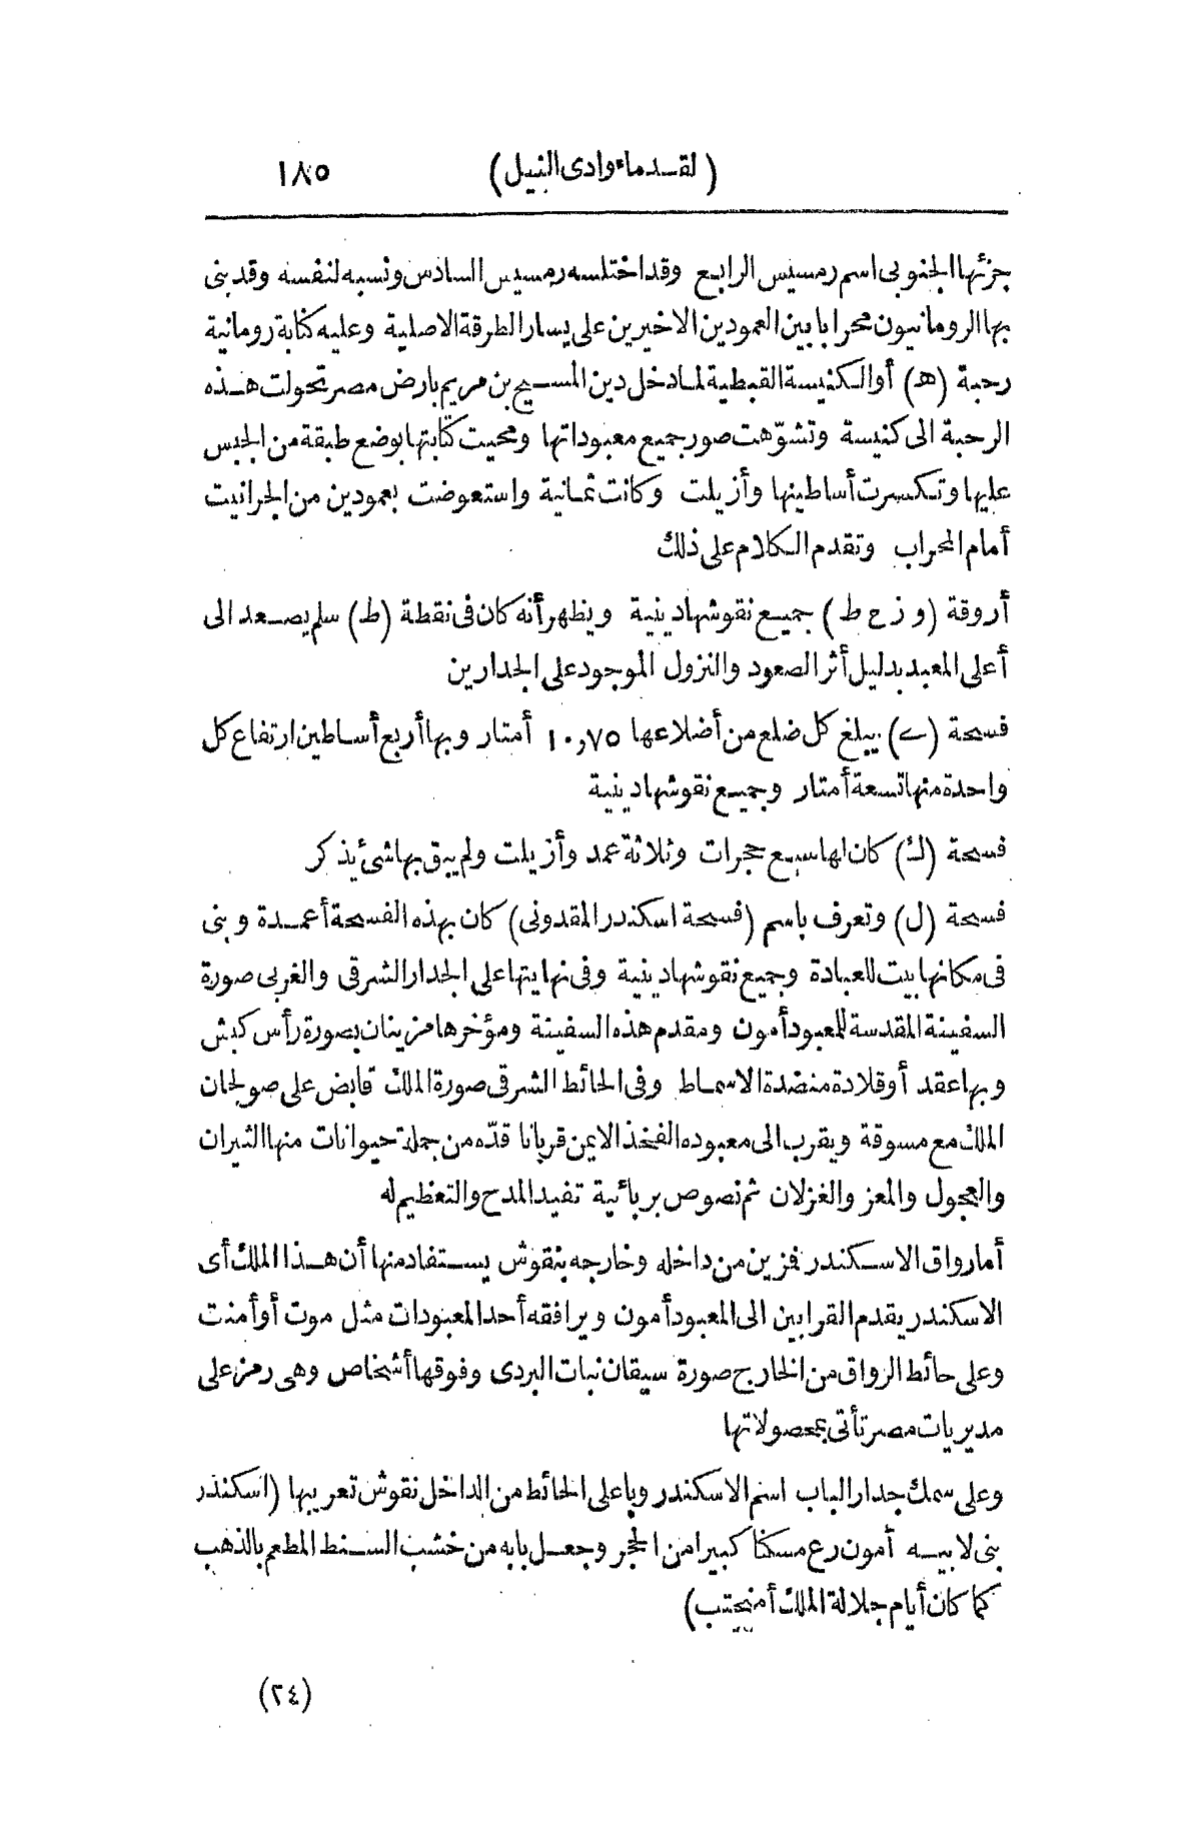 (لقدماء وادى النيل) ١٨٥
جزئها الجنوبى اسم رمسيس الرابع وقد اختلسه رمسيس السادس ونسبه لنفسه وقد بنى
بها الرومانيون محرابا بين العمودين الاخيرين على يسار الطرقة الاصلية وعليه كتابة رومانية
رحبة (ه) أو الكنيسة القبطية لما دخل دين المسيح بن مريم بارض مصر تحولت هذه
الرحبة الى كنيسة وتشوّهت صور جميع معبوداتها ومحيت كتابتها بوضع طبقة من الجبس
عليها وتكسرت أساطينها وأزيلت وكانت ثمانية واستعوضت بعمودين من الجرانيت
أمام المحراب وتقدم الكلام على ذلك
أروقة (و ز ح ط) جميع نقوشها دينية ويظهر أنه كان فى نقطة (ط) سلم يصعد الى
أعلى المعبد بدليل أثر الصعود والنزول الموجود على الجدارين
فسحة (ى) يبلغ كل ضلع من أضلاعها ١٠,٧٥ أمتار وبها أربع أساطين ارتفاع كل
واحدة منها تسعة أمتار وجميع نقوشها دينية
فسحة (ك) كان لها سبع حجرات وثلاثة عمد وأزيلت ولم يبق بها شئ يذكر
فسحة (ل) وتعرف باسم (فسحة اسكندر المقدونى) كان بهذه الفسحة أعمدة وبنى
فى مكانها بيت للعبادة وجميع نقوشها دينية وفى نهايتها على الجدار الشرقى والغربى صورة
السفينة المقدسة للمعبود أمون ومقدم هذه السفينة ومؤخرها مزينان بصورة رأس كبش
وبها عقد أو قلادة منضدة الاسماط وفى الحائط الشرقى صورة الملك قابض على صولجان
الملك مع مسوقة ويقرب الى معبوده الفخذ الايمن قربانا قدّه من جملة حيوانات منها الثيران
والعجول والمعز والغزلان ثم نصوص بربائية تفيد المدح والتعظيم له
أما رواق الاسكندر فزين من داخله وخارجه بنقوش يستفاد منها أن هذا الملك أى
الاسكندر يقدم القرابين الى المعبود أمون ويرافقه أحد المعبودات مثل موت أو أمنت
وعلى حائط الرواق من الخارج صورة سيقان نبات البردى وفوقها أشخاص وهى رمز على
مديريات مصر تأتى بمحصولاتها
وعلى سمك جدار الباب اسم الاسكندر وباعلى الحائط من الداخل نقوش تعريبها (اسكندر
بنى لابيه أمون رع مسكنا كبيرا من الحجر وجعل بابه من خشب السنط المطعم بالذهب
كما كان أيام جلالة الملك أمنحتب)
(٢٤)